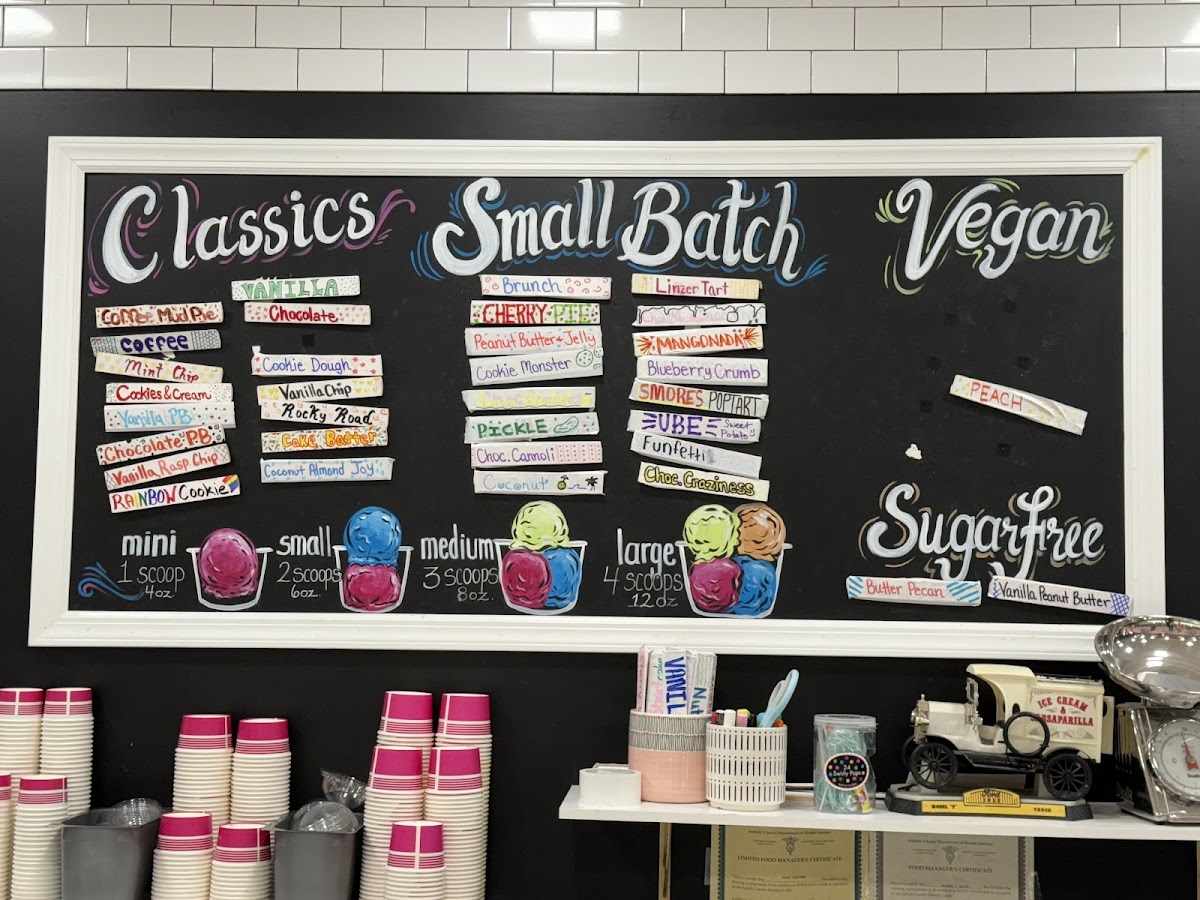 Classics
Coffee Mud Pie
Coffee
Mint Chip
Cookies & Cream
Vanilla PB
Chocolate PB
Vanilla Rasp Chip
RAINBOW Cookie
VANILLA
Chocolate
Cookie Dough
Vanilla Chip
Rocky Road
Cake Batter
Coconut Almond Joy
Small Batch
Brunch
CHERRY PIE
Peanut Butter & Jelly
Cookie Monster
PiCKLE
Choc. Cannoli
Coconut
Linzer Tart
MANGONADA
Blueberry Crumb
SMORES POPTART
UBE Sweet
Potato
Funfetti
Choc. Craziness
Vegan
PEACH
Sugar free
Butter Pecan
Vanilla Peanut Butter
mini
1 scoop
4oz.
small
2 scoops
6oz.
medium
3 scoops
8oz.
large
4 scoops
12 oz
VANIL
Nut
24
Swirly Pops
ICE CREAM
&
SARSAPARILLA
Ford
MODEL "T"
TRUCK
Suffolk County Department of Health Services
LIMITED FOOD MANAGER'S CERTIFICATE
Suffolk County Department of Health Services
FOOD MANAGER'S CERTIFICATE